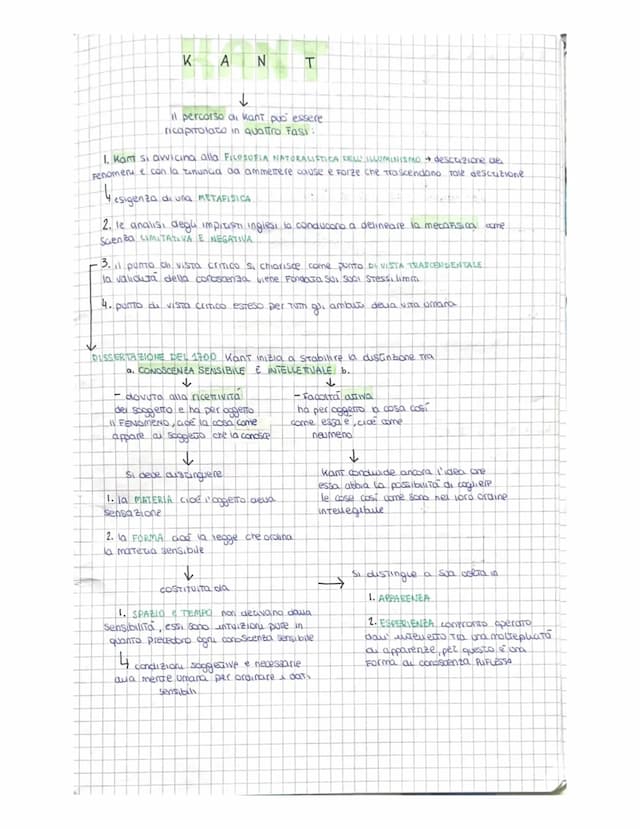 KANT
il percorso di Kant può essere
ricapitolato in quattro Fasi:
1. Kant si avvicina alla FILOSOFIA NATURALISTICA DELL'ILLUMINISMO → descrizione dei
Fenomeni e con la rinuncia ad ammettere cause e Forze che trascendano tale descrizione
↳ esigenza di una METAFISICA
2. le analisi degli impiristi inglesi lo conducono a delineare la metafisica come
scienza LIMITATIVA E NEGATIVA
3. il punto di vista critico si chiarisce come punto DI VISTA TRASCENDENTALE
la validità della conoscenza viene Fondata sui suoi stessi limiti
4. punto di vista critico esteso per tutti gli ambiti della vita umana
DISSERTAZIONE DEL 1700 Kant inizia a stabilire la distinzione tra
a. CONOSCENZA SENSIBILE E INTELLETTUALE b.
- dovuta alla ricettività
del soggetto e ha per oggetto
il FENOMENO, cioè la cosa come
appare al soggetto che la conosce
- Facoltà attiva
ha per oggetto la cosa così
come essa è, cioè come
noumeno
Si deve distinguere
1. la MATERIA cioè l'oggetto della
sensazione
2. la FORMA cioè la legge che ordina
la materia sensibile
Kant condivide ancora l'idea che
essa abbia la possibilità di cogliere
le cose così come sono nel loro ordine
intellegibile
COSTITUITA DA
1. SPAZIO E TEMPO non derivano dalla
sensibilità, essi sono intuizioni pure in
quanto precedono ogni conoscenza sensibile
↳ condizioni soggettive e necessarie
alla mente umana per ordinare i dati
sensibili
→ Si distingue a sua volta in
1. APPARENZA
2. ESPERIENZA confronto operato
dall'intelletto tra una molteplicità
di apparenze, per questo è una
Forma di conoscenza RIFLESSA